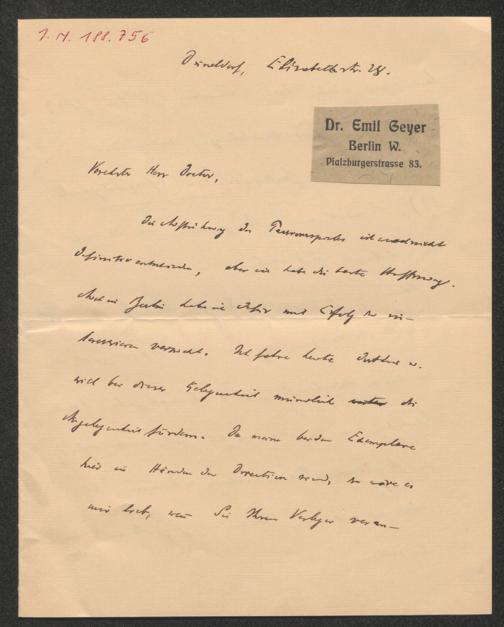 J. N. 188.756
Düsseldorf, Elisabethstr. 28.
Dr. Emil Geyer
Berlin W.
Pfalzburgerstrasse 83.
Verehrter Herr Doctor,
Die Aufführung des ist noch nicht
definitiv entschieden, aber ich habe die beste Hoffnung.
Auch in Berlin habe ich dafür mit Erfolg zu in-
teressieren versucht. Ich fahre heute dorthin u.
will bei dieser Gelegenheit mündlich die
Angelegenheit fördern. Da meine beiden Exemplare
in Händen der Direction sind, so wäre es
mir lieb, wenn Sie Ihren Verleger veran-